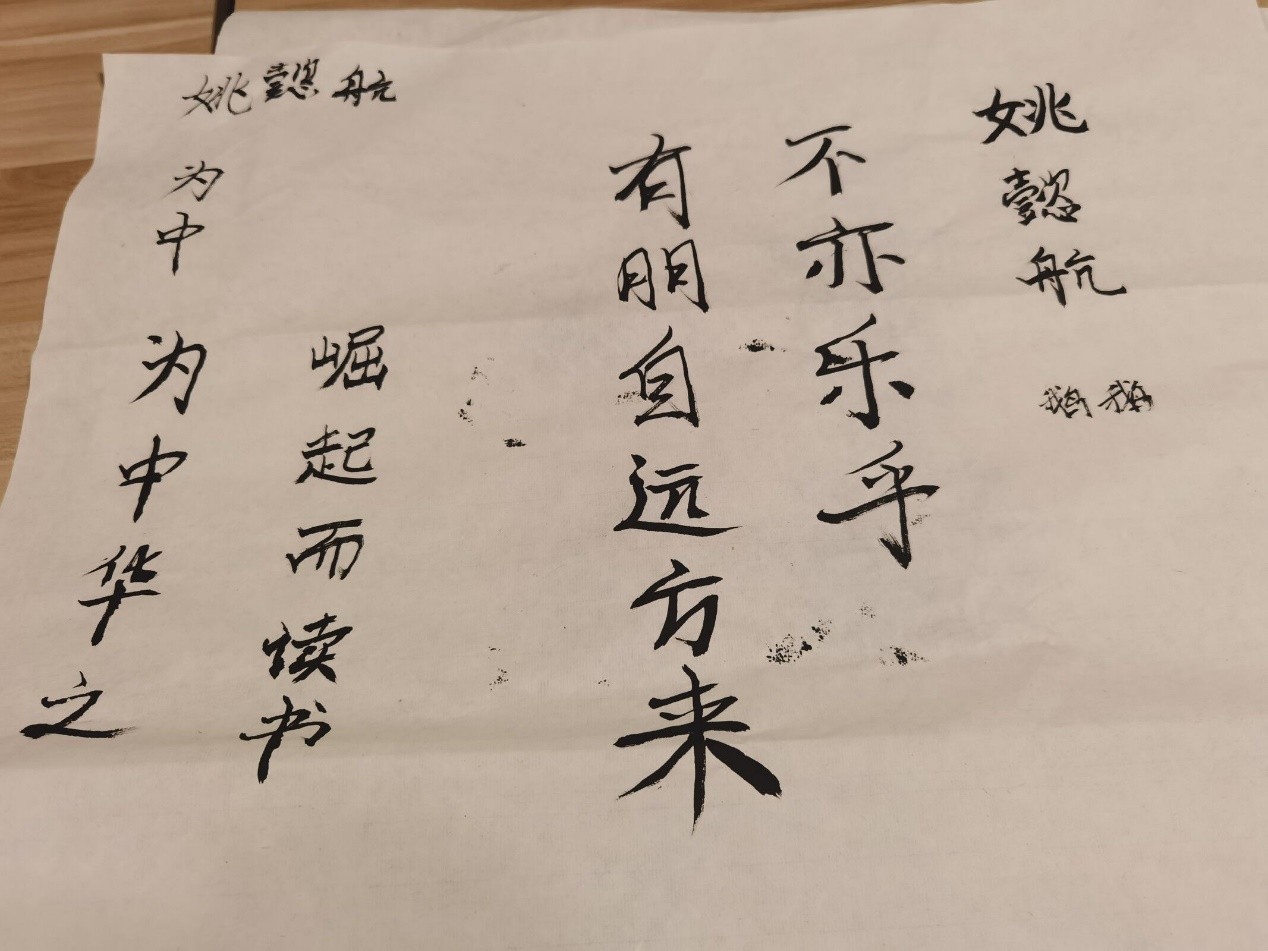 姚懿航
为中
为中华之
崛起而读书
有朋自远方来
不亦乐乎
姚懿航
鹅鹅